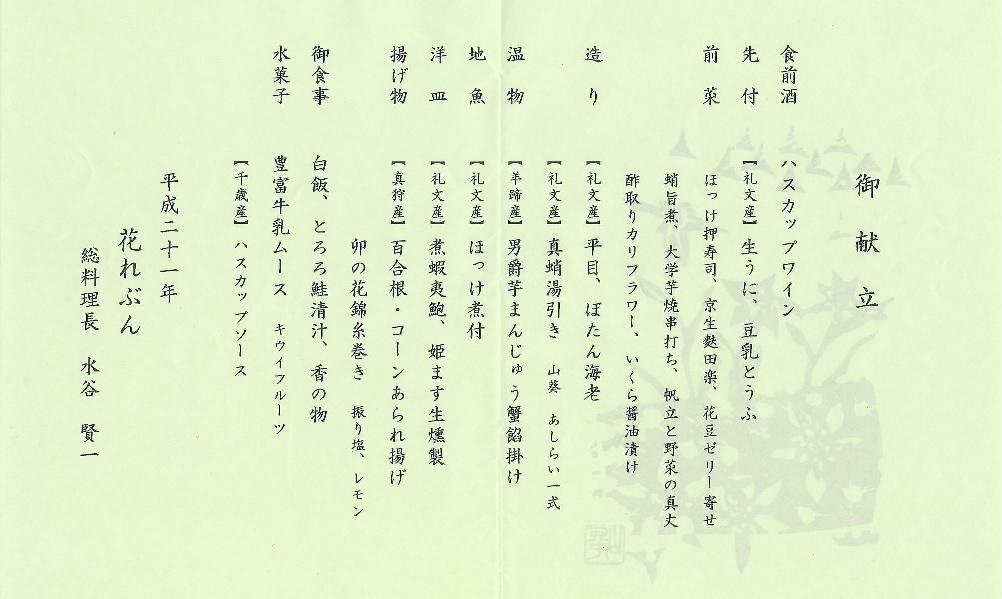 御献立
食前酒　ハスカップワイン
先付　【礼文産】生うに、豆乳とうふ
前菜　ほっけ押寿司、京生麩田楽、花豆ゼリー寄せ
蛸旨煮、大学芋焼串打ち、帆立と野菜の真丈
酢取りカリフラワー、いくら醤油漬け
造り　【礼文産】平目、ぼたん海老
【礼文産】真蛸湯引き　山葵　あしらい一式
温物　【羊蹄産】男爵芋まんじゅう蟹餡掛け
地魚　【礼文産】ほっけ煮付
洋皿　【礼文産】煮蝦夷鮑、姫ます生燻製
揚げ物　【真狩産】百合根・コーンあられ揚げ
卯の花錦糸巻き　振り塩、レモン
御食事　白飯、とろろ鮭清汁、香の物
水菓子　豊富牛乳ムース　キウイフルーツ
【千歳産】ハスカップソース
平成二十一年
花れぶん
総料理長　水谷　賢一